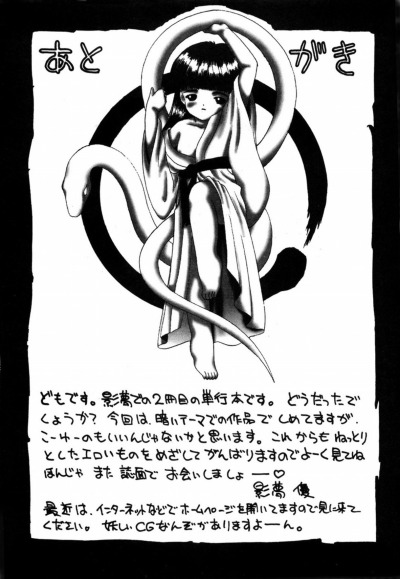 あとがき
どもです。影夢での2冊目の単行本です。どうだったで
しょうか?今回は、暗いテーマでの作品でしめてますが、
こーゆーのもいいんじゃないかと思います。これからもねっとり
としたエロいものをめざしてがんばりますのでよーく見てね
ほんじゃ また 誌面で お会いしましょ ー♡
影夢 優
最近は、インターネットなどでホームページを開いてますので見に来て
ください。妖しいCGなんぞがありますよーん。